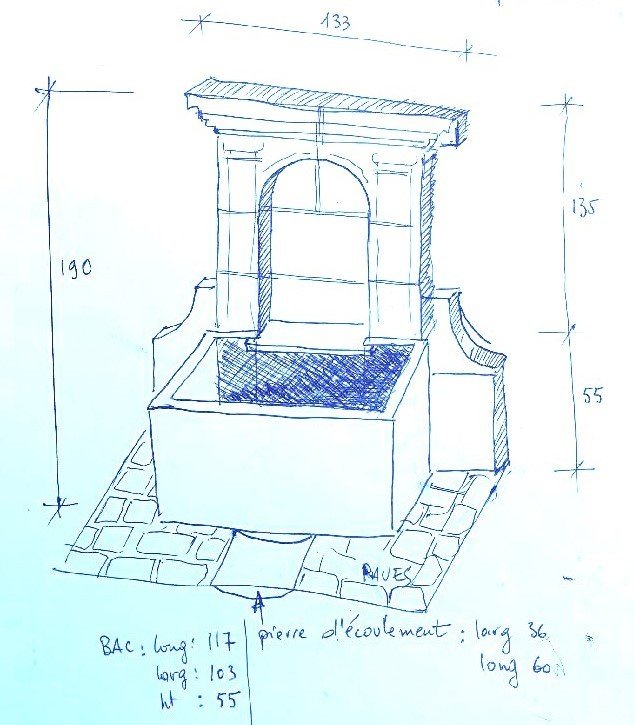 133
190
135
55
PAVES
BAC: long: 117
larg: 103
ht : 55
pierre d'écoulement : larg 36
long 60